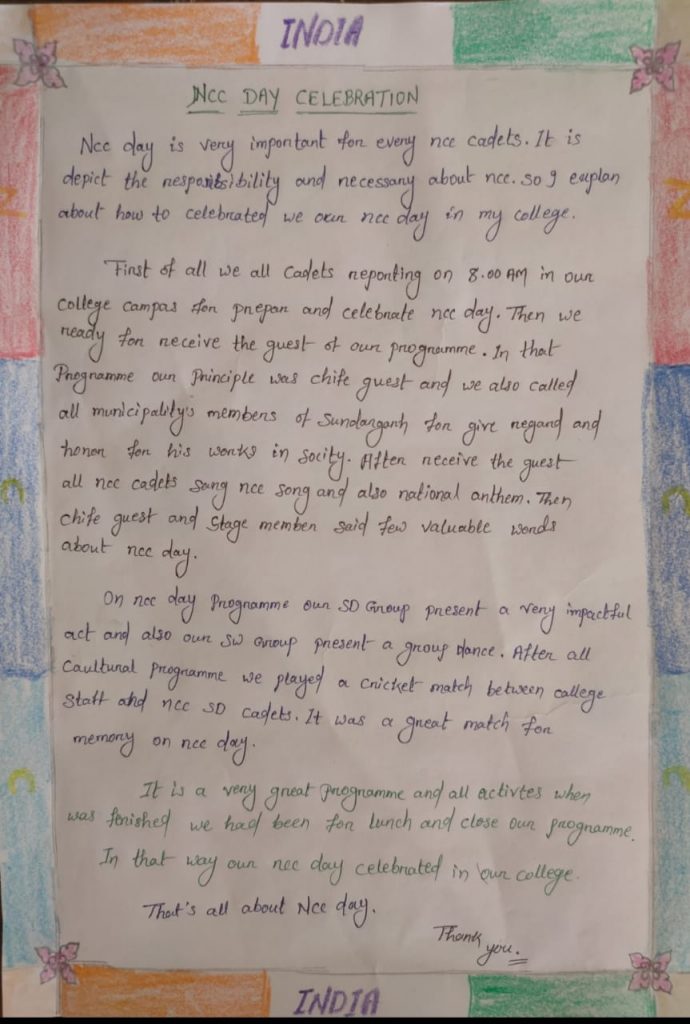 INDIA
NCC DAY CELEBRATION
Ncc day is very important for every ncc cadets. It is
depict the responsibility and necessary about ncc. so I explan
about how to celebrated we our ncc day in my college.
First of all we all Cadets reporting on 8.00 AM in our
College campas for prepar and celebrate ncc day. Then we
ready for receive the guest of our programme. In that
Programme our Principle was chife guest and we also called
all municipality's members of Sundargarh for give regard and
honor for his works in socity. After receive the guest
all ncc cadets sang ncc song and also national anthem. Then
chife guest and Stage member said few valuable words
about ncc day.
On ncc day Programme our SD Group present a very impactful
act and also our SW Group present a group dance. After all
Caultural Programme we played a cricket match between college
Staff and ncc SD cadets. It was a great match for
memory on ncc day.
It is a very great Programme and all activtes when
was finished we had been for lunch and close our programme.
In that way our ncc day celebrated in our college.
That's all about Ncc day.
Thank
you.
INDIA
N
N
C
C
C
C